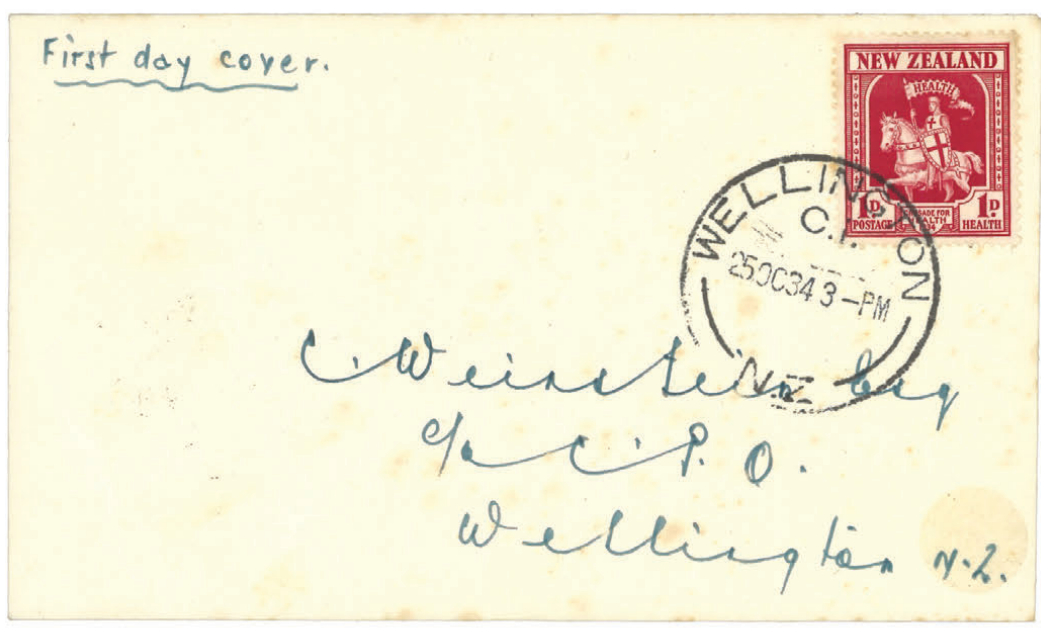 First day cover.
NEW ZEALAND
HEALTH
1D. 1D.
POSTAGE CRUSADE FOR HEALTH 1934 HEALTH
WELLINGTON
C.1.
25OC34 3-PM
N.Z.
C. Weinstein Esq
c/o C. P. O.
Wellington N.Z.